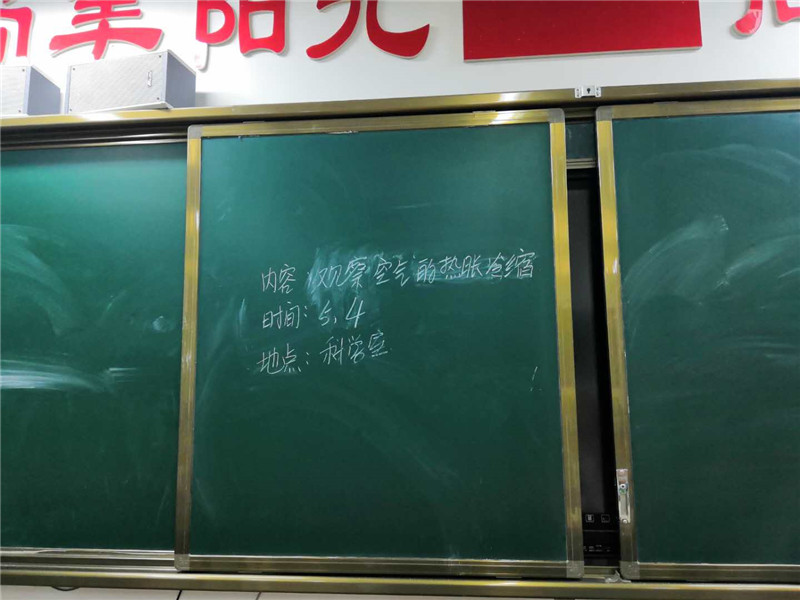 阳光
内容:观察空气的热胀冷缩
时间:5.4
地点:科学室